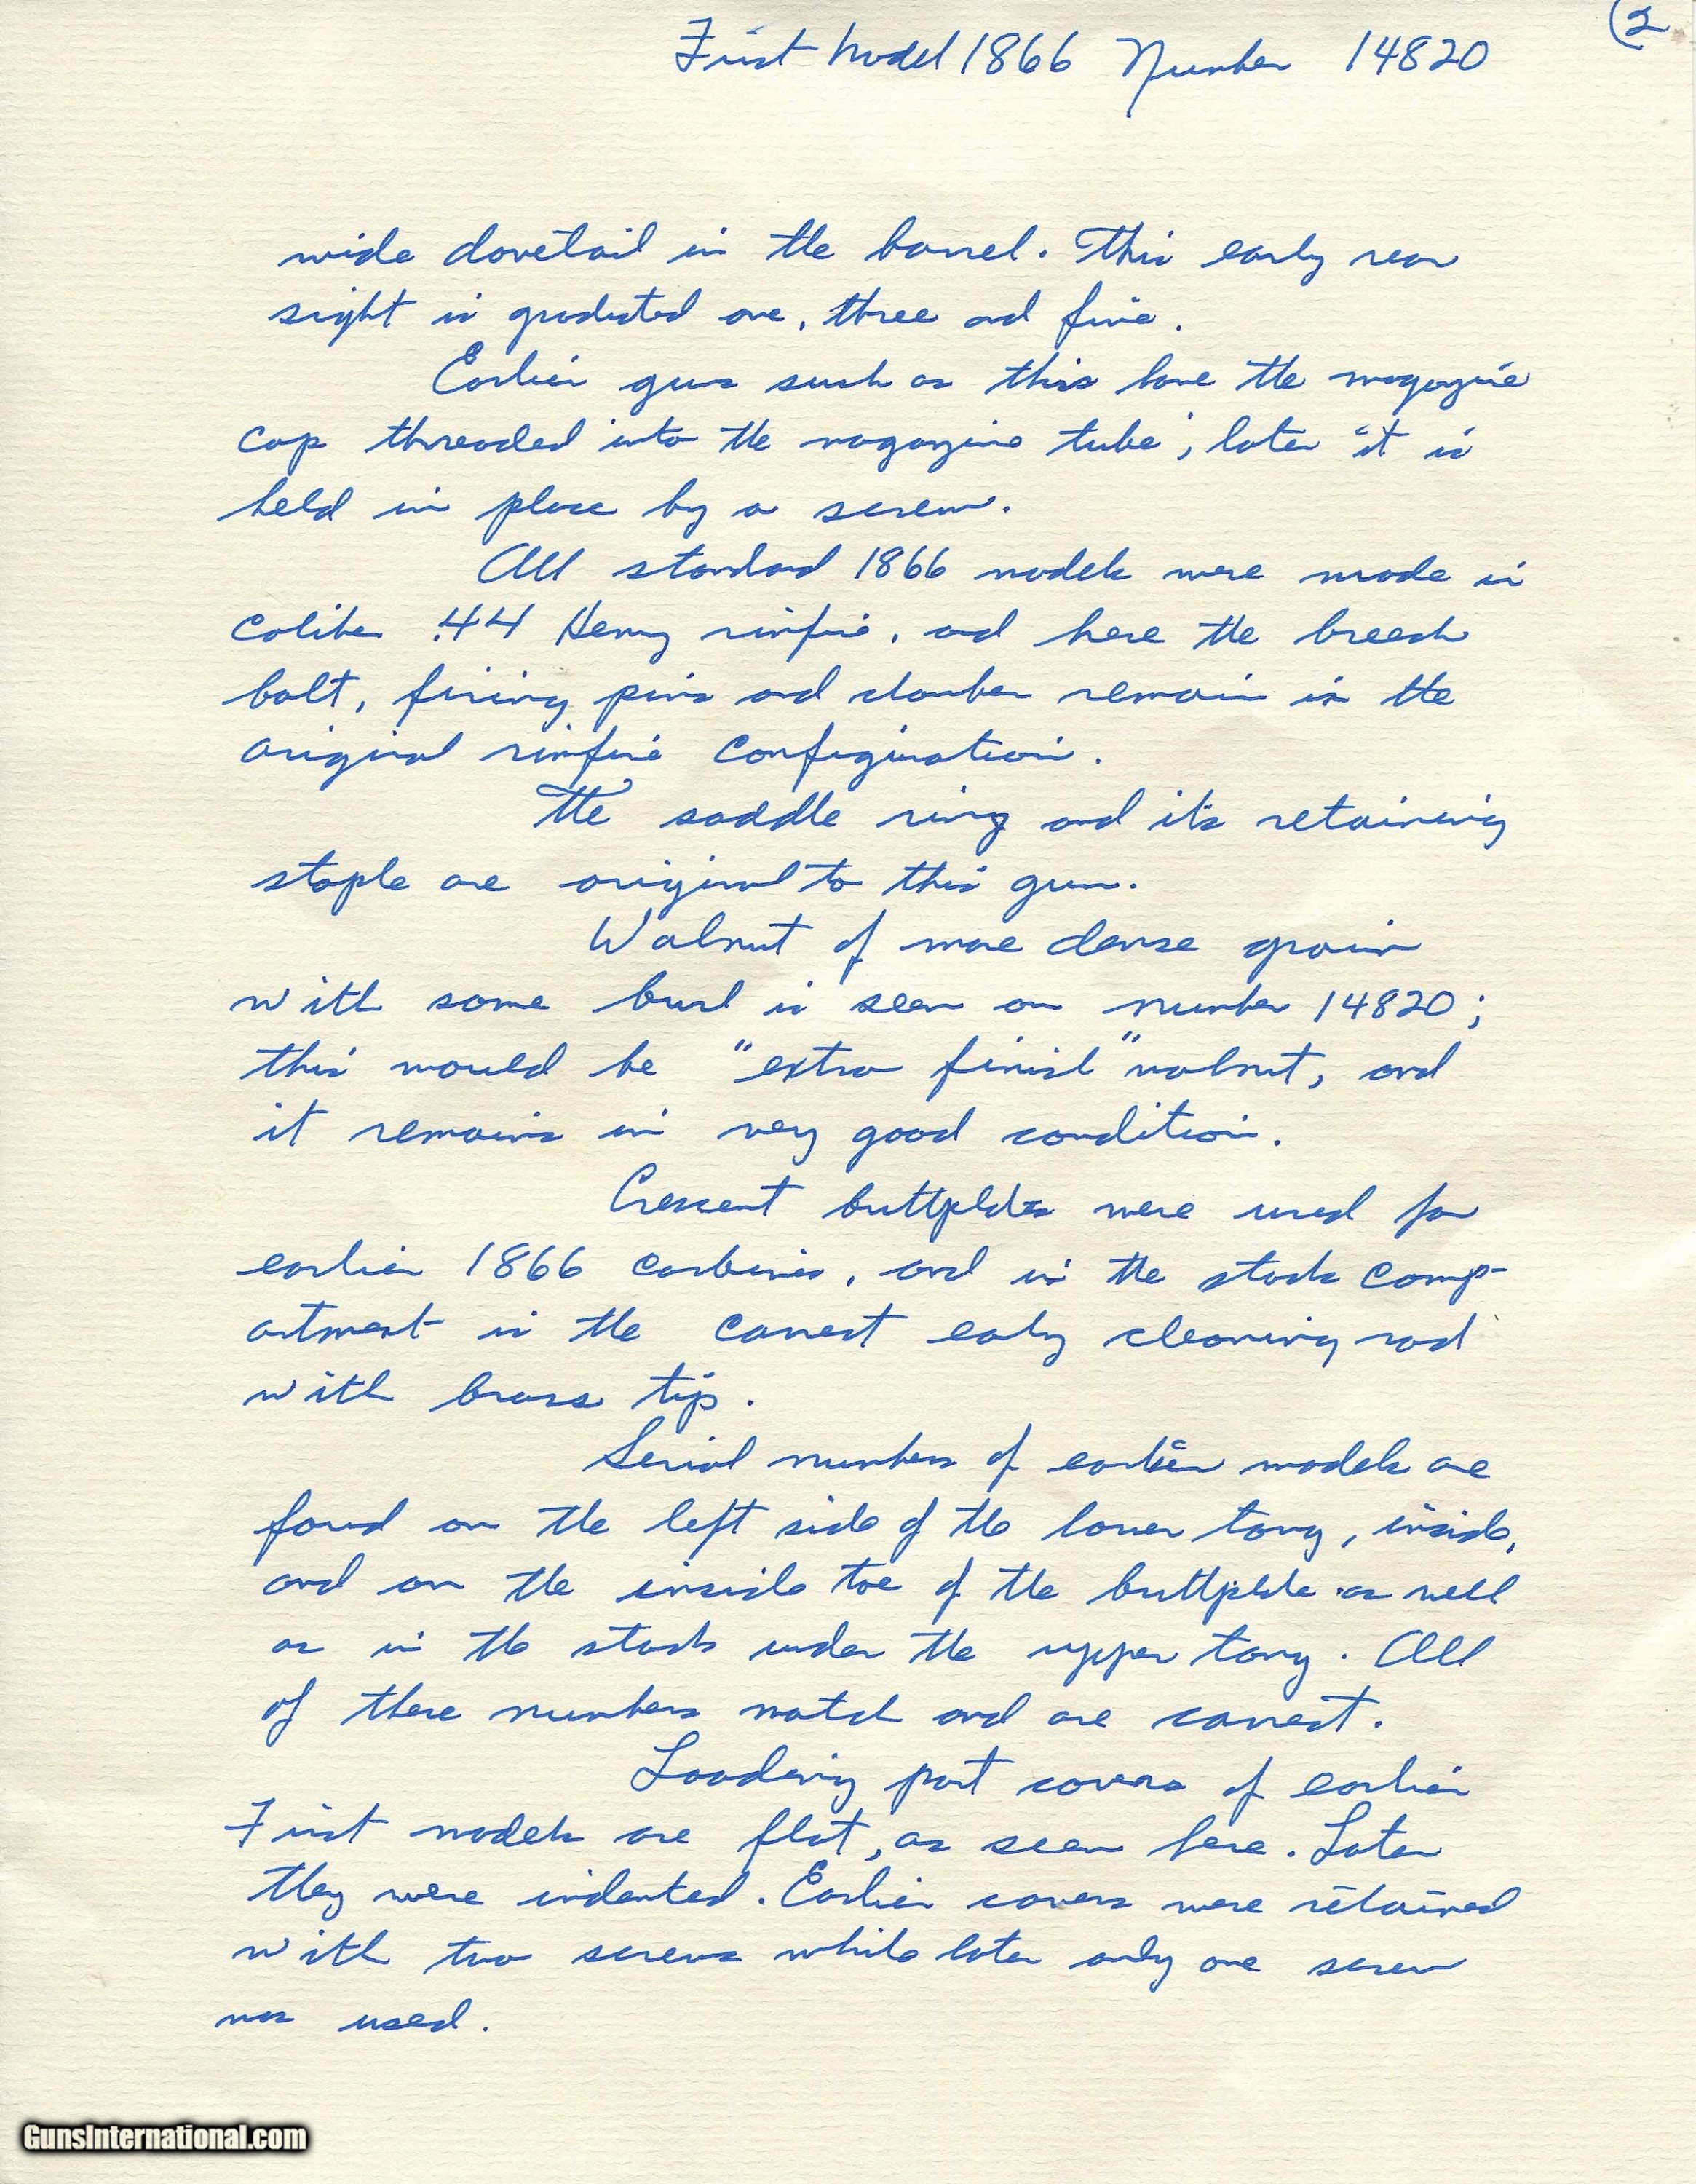 (2
First Model 1866 Number 14820
wide dovetail in the barrel. This early rear
sight is graduated one, three and five.
Earlier guns such as this have the magazine
cap threaded into the magazine tube; later it is
held in place by a screw.
All standard 1866 models were made in
caliber .44 Henry rimfire, and here the breech
bolt, firing pins and chamber remain in the
original rimfire configuration.
The saddle ring and its retaining
staple are original to this gun.
Walnut of more dense grain
with some burl is seen on number 14820;
this would be "extra finish" walnut, and
it remains in very good condition.
Crescent buttplates were used for
earlier 1866 carbines, and in the stock comp-
artment is the correct early cleaning rod
with brass tip.
Serial numbers of earlier models are
found on the left side of the lower tang, inside,
and on the inside toe of the buttplate as well
as in the stock under the upper tang. All
of these numbers match and are correct.
Loading port covers of earlier
First models are flat, as seen here. Later
they were indented. Earlier covers were retained
with two screws while later only one screw
was used.
GunsInternational.com